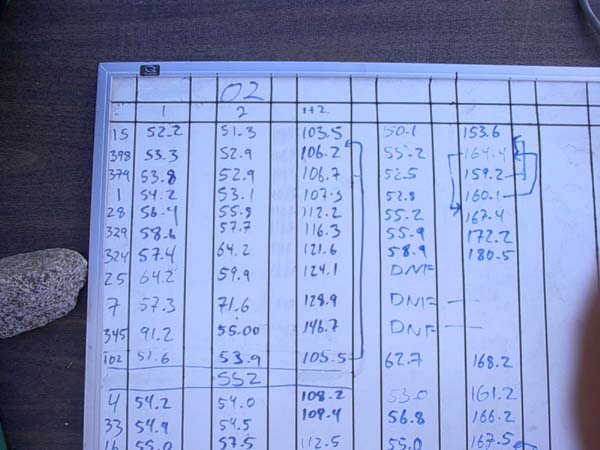 O2
1 2 1+2
15 52.2 51.3 103.5 50.1 153.6
398 53.3 52.9 106.2 55.2 164.4
379 53.8 52.9 106.7 52.5 159.2
1 54.2 53.1 107.3 52.8 160.1
28 56.4 55.8 112.2 55.2 167.4
329 58.6 57.7 116.3 55.9 172.2
324 57.4 64.2 121.6 58.9 180.5
25 64.2 59.9 124.1 DNF
7 57.3 71.6 128.9 DNF
345 91.2 55.00 146.7 DNF
102 51.6 53.9 105.5 62.7 168.2
SS2
4 54.2 54.0 108.2 53.0 161.2
33 54.9 54.5 109.4 56.8 166.2
16 55.0 57.5 112.5 55.0 167.5